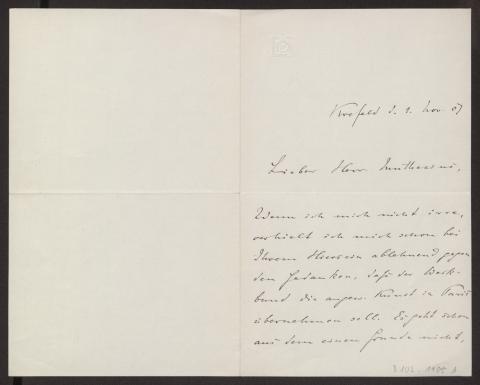 Krefeld d. 9. Nov. 07
Lieber Herr Muthesius,
Wenn ich mich nicht irre,
verhielt ich mich schon bei
Ihrem Hiersein ablehnend gegen
den Gedanken, daß der Werk-
bund die angew. Kunst in Paris
übernehmen soll. Es geht schon
aus dem einen Grunde nicht,